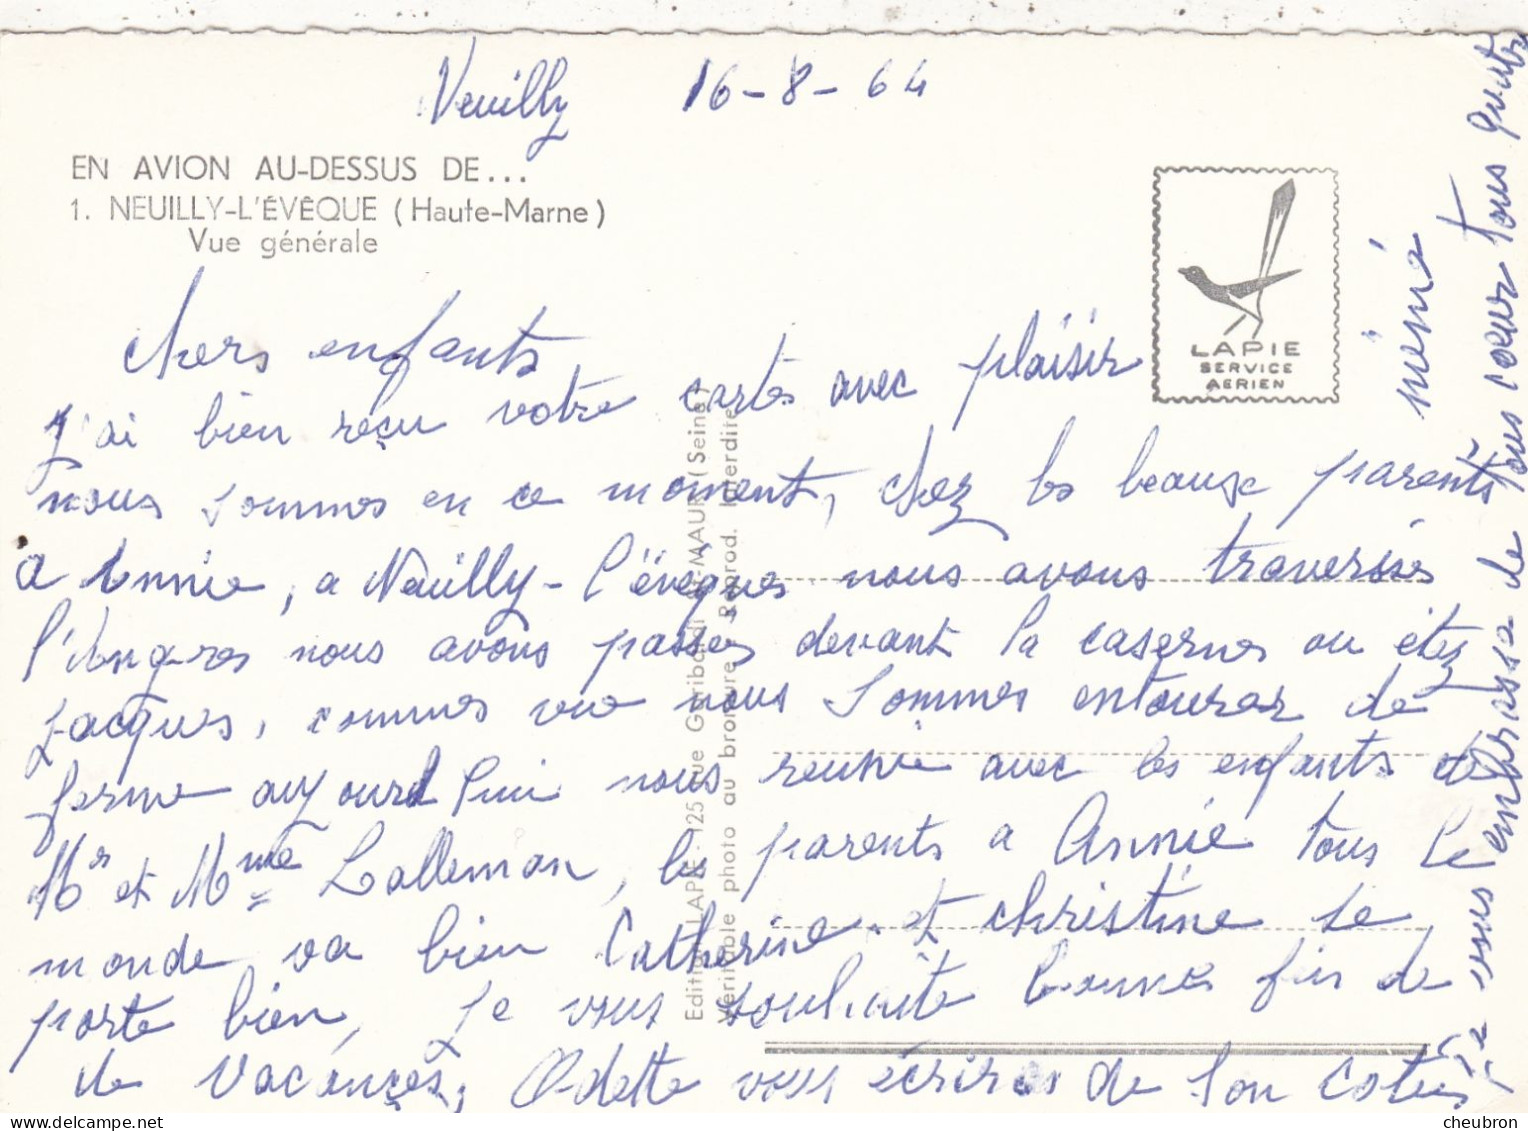 Neuilly 16-8-64
EN AVION AU-DESSUS DE...
1. NEUILLY-L'ÉVÊQUE (Haute-Marne)
Vue générale
LAPIE
SERVICE
AERIEN
Chers enfants
J'ai bien reçu votre cartes avec plaisir
nous sommes en ce moment, chez les beause parents
a Annie, a Neuilly-l'évêques nous avons traversés
l'Angres nous avons passes devant la casernes ou étez
Jacques, commes vue nous sommes entourer de
ferme aujourd'hui nous reunie avec les enfants de
Mr et Mme Lalleman, les parents a Annie tous le
monde va bien Catherine et christine se
porte bien, Je vous souhaite bonnes fin de
de vacances, Odette vous écriras de son cotés
Je vous embrasse de tous coeur tous quatre
mémé
Edition LAPIE - 125 rue Garibaldi St-MAUR (Seine)
Véritable photo au bromure - Reprod. Interdite
cheubron